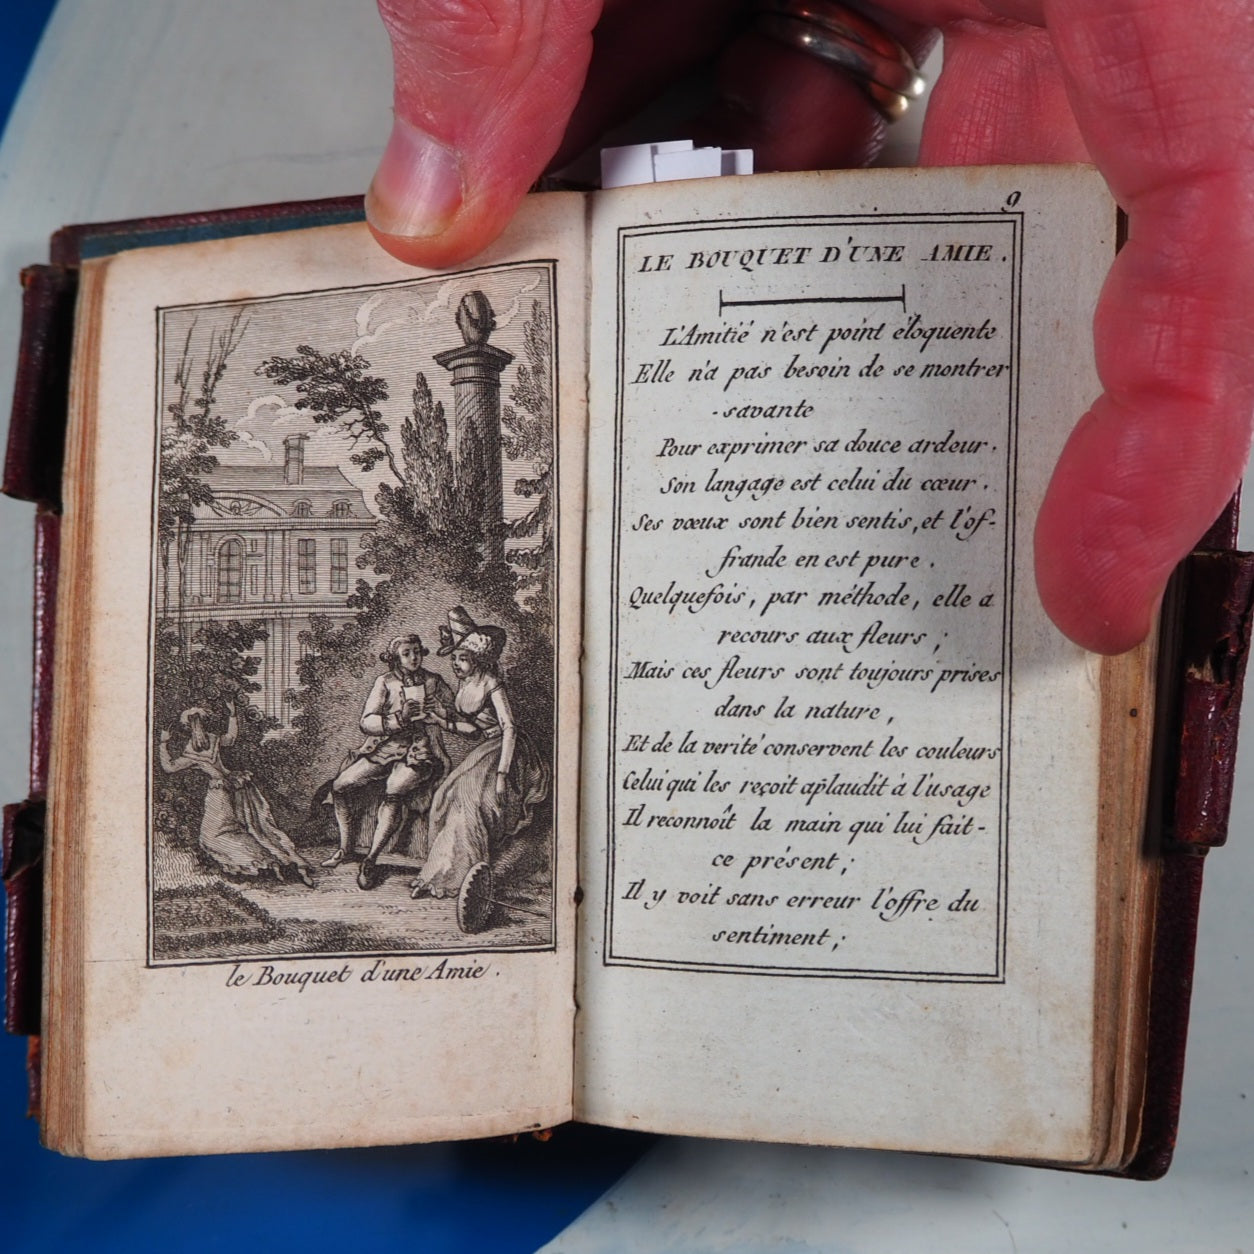 le Bouquet d'une Amie.
9
LE BOUQUET D'UNE AMIE.
L'Amitié n'est point éloquente
Elle n'a pas besoin de se montrer
savante
Pour exprimer sa douce ardeur.
Son langage est celui du cœur.
Ses vœux sont bien sentis, et l'of-
frande en est pure.
Quelquefois, par méthode, elle a
recours aux fleurs;
Mais ces fleurs sont toujours prises
dans la nature,
Et de la verité conservent les couleurs
Celui qui les reçoit aplaudit à l'usage
Il reconnoît la main qui lui fait-
ce présent;
Il y voit sans erreur l'offre du
sentiment;